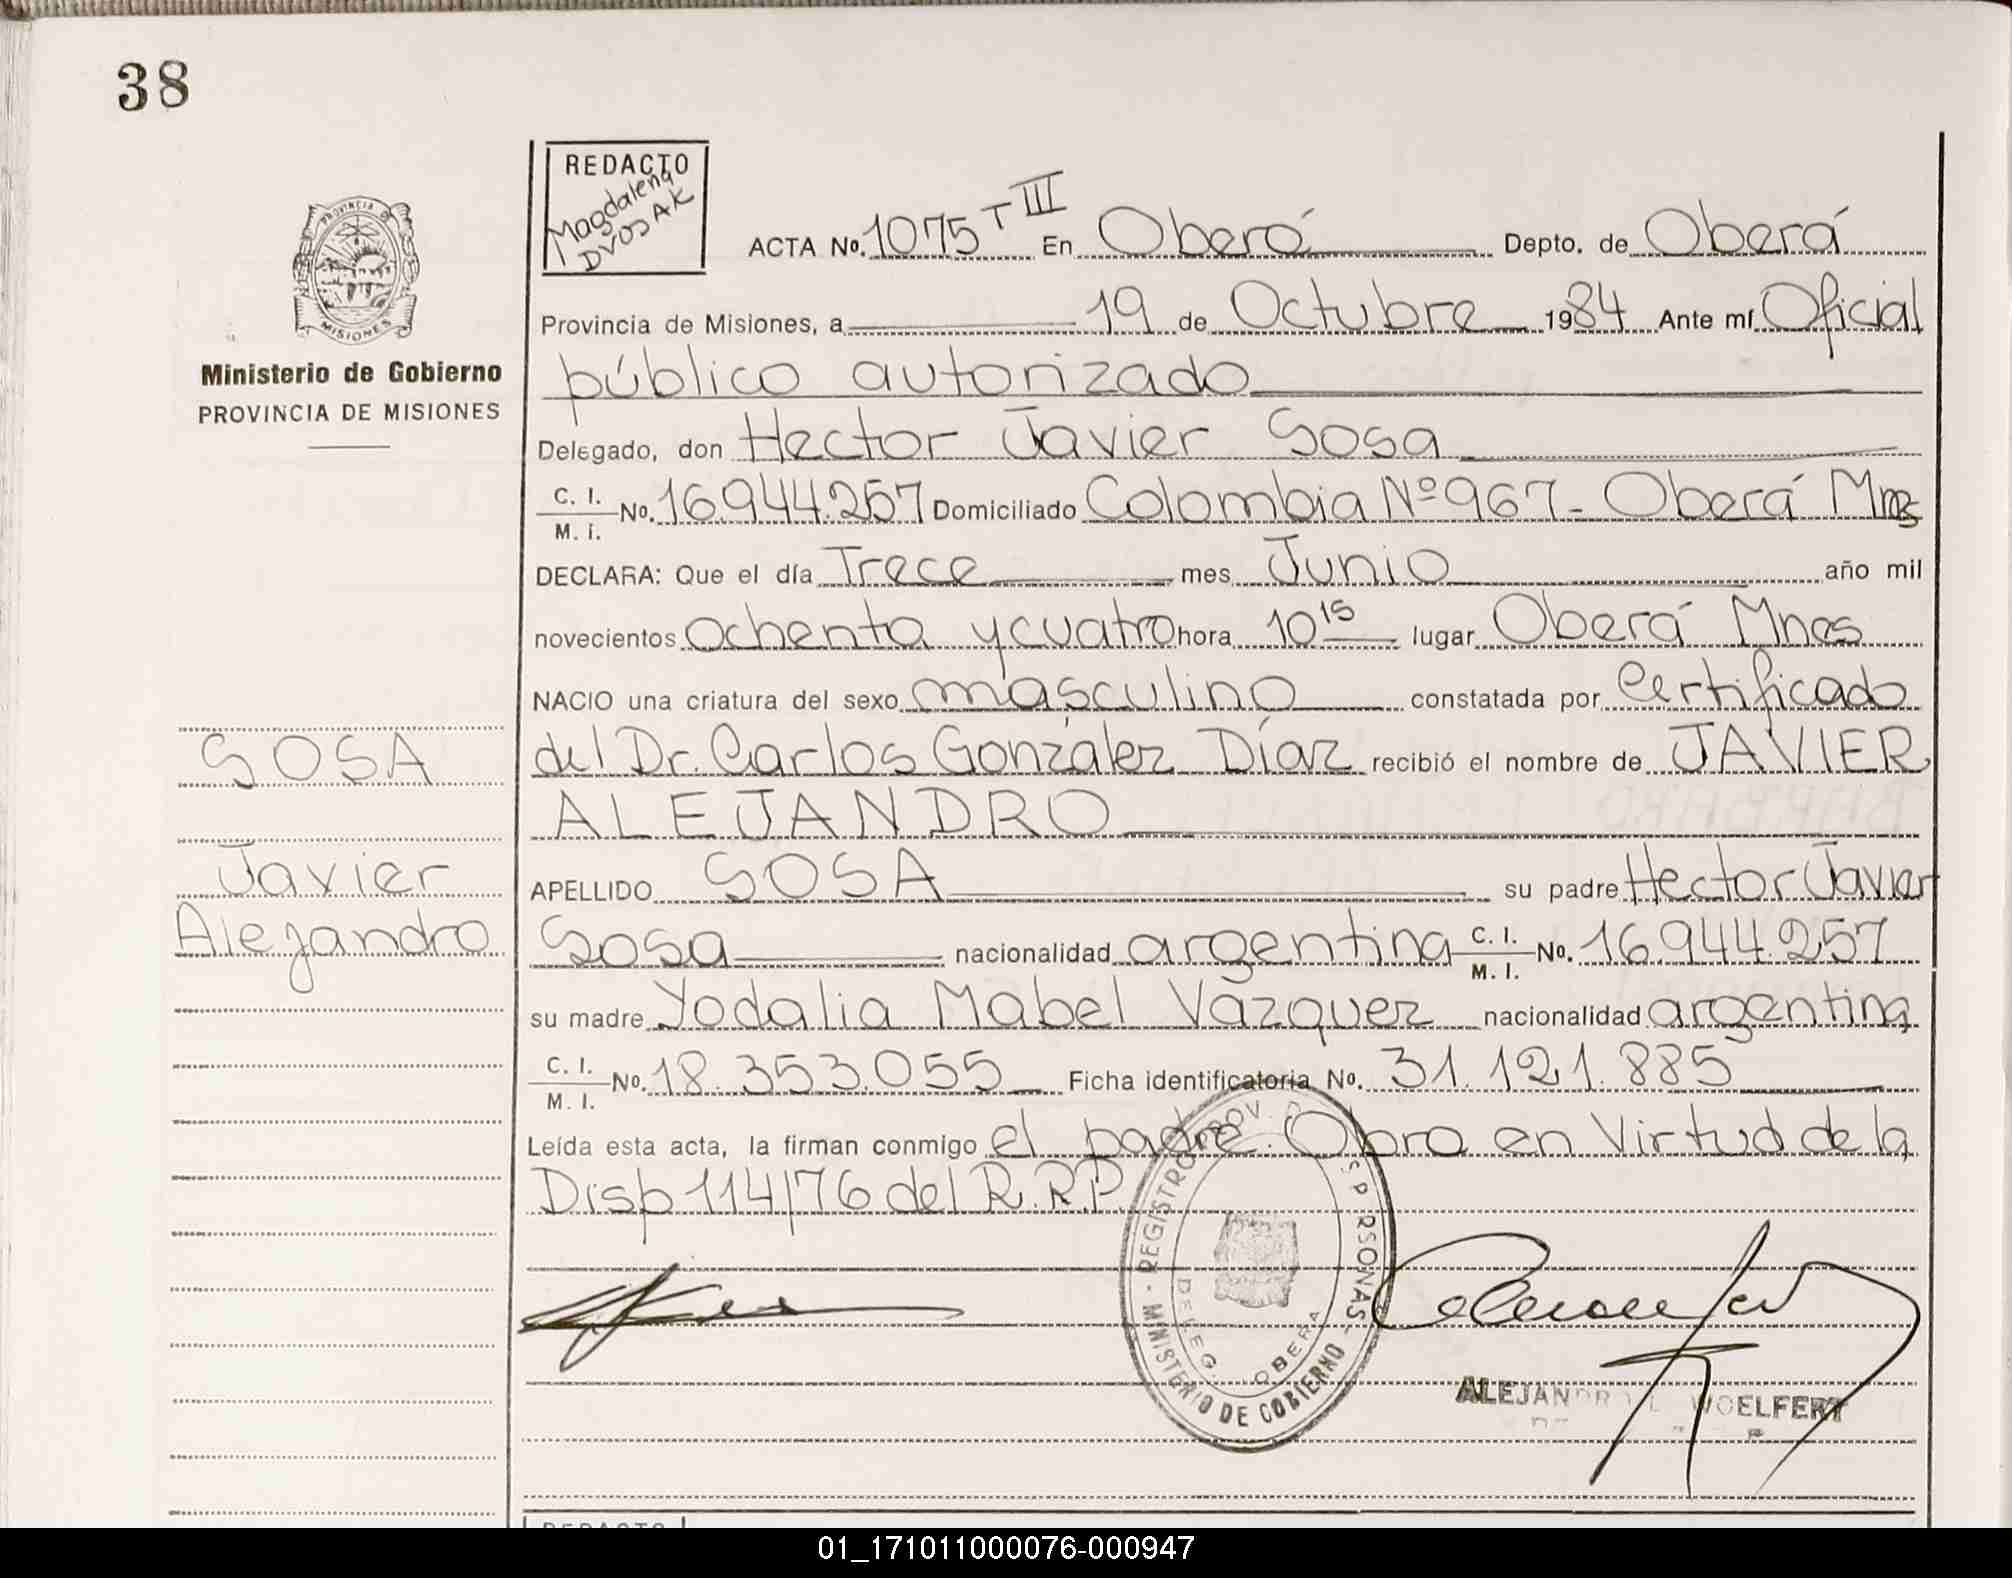 38
REDACTO
Magdalena
DVOSAK
ACTA No. 1075 T III En Oberá Depto. de Oberá
PROVINCIA DE MISIONES
Provincia de Misiones, a 19 de Octubre 1984 Ante mí Oficial
Ministerio de Gobierno
PROVINCIA DE MISIONES
público autorizado
Delegado, don Hector Javier Sosa
C. I. M. I. No. 16.944.257 Domiciliado Colombia Nº 967 - Oberá Mnes
DECLARA: Que el día Trece mes Junio año mil
novecientos ochenta y cuatro hora 10 15 lugar Oberá Mnes
NACIO una criatura del sexo masculino constatada por Certificado
SOSA
del Dr. Carlos González Díaz recibió el nombre de JAVIER
ALEJANDRO
Javier
Alejandro
APELLIDO SOSA su padre Hector Javier
Sosa nacionalidad argentina C. I. M. I. No. 16.944.257
su madre Yodalia Mabel Vázquez nacionalidad argentina
C. I. M. I. No. 18.353.055 Ficha identificatoria No. 31.121.885
Leída esta acta, la firman conmigo el padre. Obra en Virtud de la
Disp 114/76 del R.R.P.
MINISTERIO DE GOBIERNO - REGISTRO PROV. PERSONAS -
DELEG. OBERA
ALEJANDRO WOELFERT
REDACTO
01_171011000076-000947